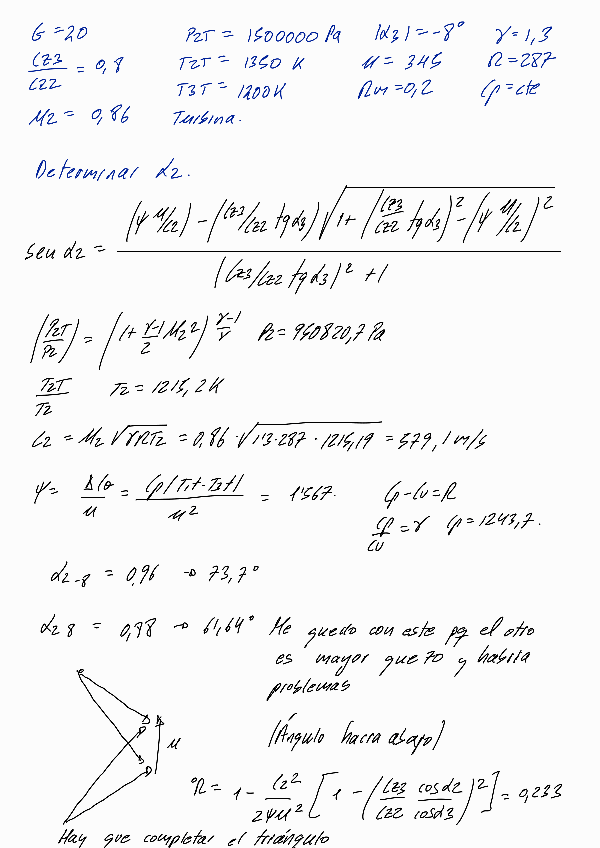 G = 20 P2T = 1500000 Pa |α3| = -8° γ = 1,3
Cz3/Cz2 = 0,8 T2T = 1350 K u = 345 R = 287
T3T = 1200 K Rm = 0,2 Cp = cte
M2 = 0,86 Turbina.
Determinar α2.
sen α2 = ((ψ u/C2) - (Cz3/Cz2 tg α3) √(1 + (Cz3/Cz2 tg α3)² - (ψ u/C2)²)) / ((Cz3/Cz2 tg α3)² + 1)
(P2T/P2) = (1 + γ-1/2 M2²)^(γ-1/γ) P2 = 950820,7 Pa
T2T/T2 T2 = 1215,2 K
C2 = M2 √(γRT2) = 0,86 · √(1'3 · 287 · 1215,19) = 579,1 m/s
ψ = ΔCθ/u = Cp(T1t - T3t)/u² = 1'567. Cp - Cv = R
Cp/Cv = γ Cp = 1243,7.
α2 -8 = 0,96 → 73,7°
α2 8 = 0,88 → 61,64° Me quedo con este pq el otro
es mayor que 70 y habría
problemas
u (Ángulo hacia abajo)
°R = 1 - C2²/2ψu² [1 - (Cz3/Cz2 cosα2/cosα3)²] = 0,233
Hay que completar el triángulo